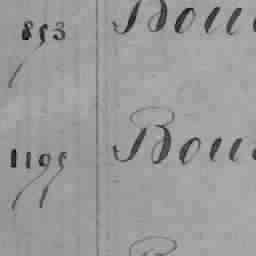 853 Bou
1195 Bou